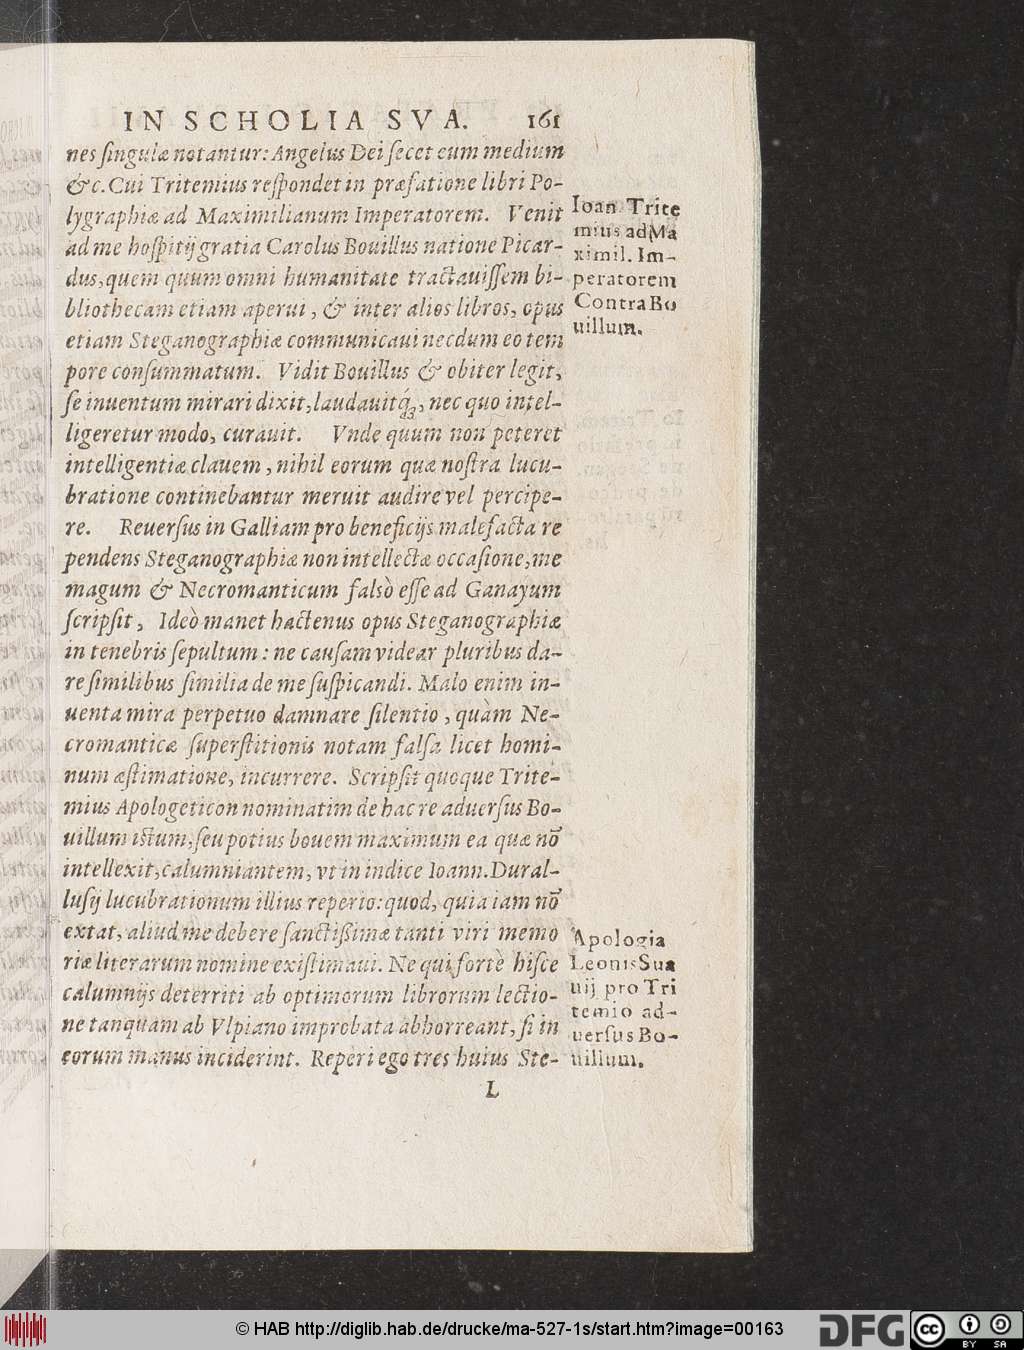 IN SCHOLIA SVA. 161
nes singulæ notantur: Angelus Dei fecet eum medium
&c. Cui Tritemius respondet in præfatione libri Po-
lygraphiæ ad Maximilianum Imperatorem. Venit
ad me hospitij gratia Carolus Bouillus natione Picar-
dus, quem quum omni humanitate tractauissem bi-
bliothecam etiam aperui, & inter alios libros, opus
etiam Steganographiæ communicaui necdum eo tem
pore consummatum. Vidit Bouillus & obiter legit,
se inuentum mirari dixit, laudauitq́;, nec quo intel-
ligeretur modo, curauit. Vnde quum non peteret
intelligentiæ clauem, nihil eorum quæ nostra lucu-
bratione continebantur meruit audire vel percipe-
re. Reuersus in Galliam pro beneficijs malefacta re
pendens Steganographiæ non intellectæ occasione, me
magum & Necromanticum falsò esse ad Ganayum
scripsit, Ideò manet hactenus opus Steganographiæ
in tenebris sepultum: ne causam videar pluribus da-
re similibus similia de me suspicandi. Malo enim in-
uenta mira perpetuo damnare silentio, quàm Ne-
cromanticæ superstitionis notam falsa licet homi-
num æstimatione, incurrere. Scripsit quoque Trite-
mius Apologeticon nominatim de hac re aduersus Bo-
uillum istum, seu potius bouem maximum ea quæ nō
intellexit, calumniantem, vt in indice Ioann. Dural-
lusij lucubrationum illius reperio: quod, quia iam nō
extat, aliud me debere sanctißimæ tanti viri memo
riæ literarum nomine existimaui. Ne qui fortè hisce
calumnijs deterriti ab optimorum librorum lectio-
ne tanquam ab Vlpiano improbata abhorreant, si in
eorum manus inciderint. Reperi ego tres huius Ste-
L
Ioan. Trite
mius ad Ma
ximil. Im-
peratorem
Contra Bo
uillum.
Apologia
Leonis Sua
uij pro Tri
temio ad-
uersus Bo-
uillum.
© HAB http://diglib.hab.de/drucke/ma-527-1s/start.htm?image=00163
DFG
cc
BY SA